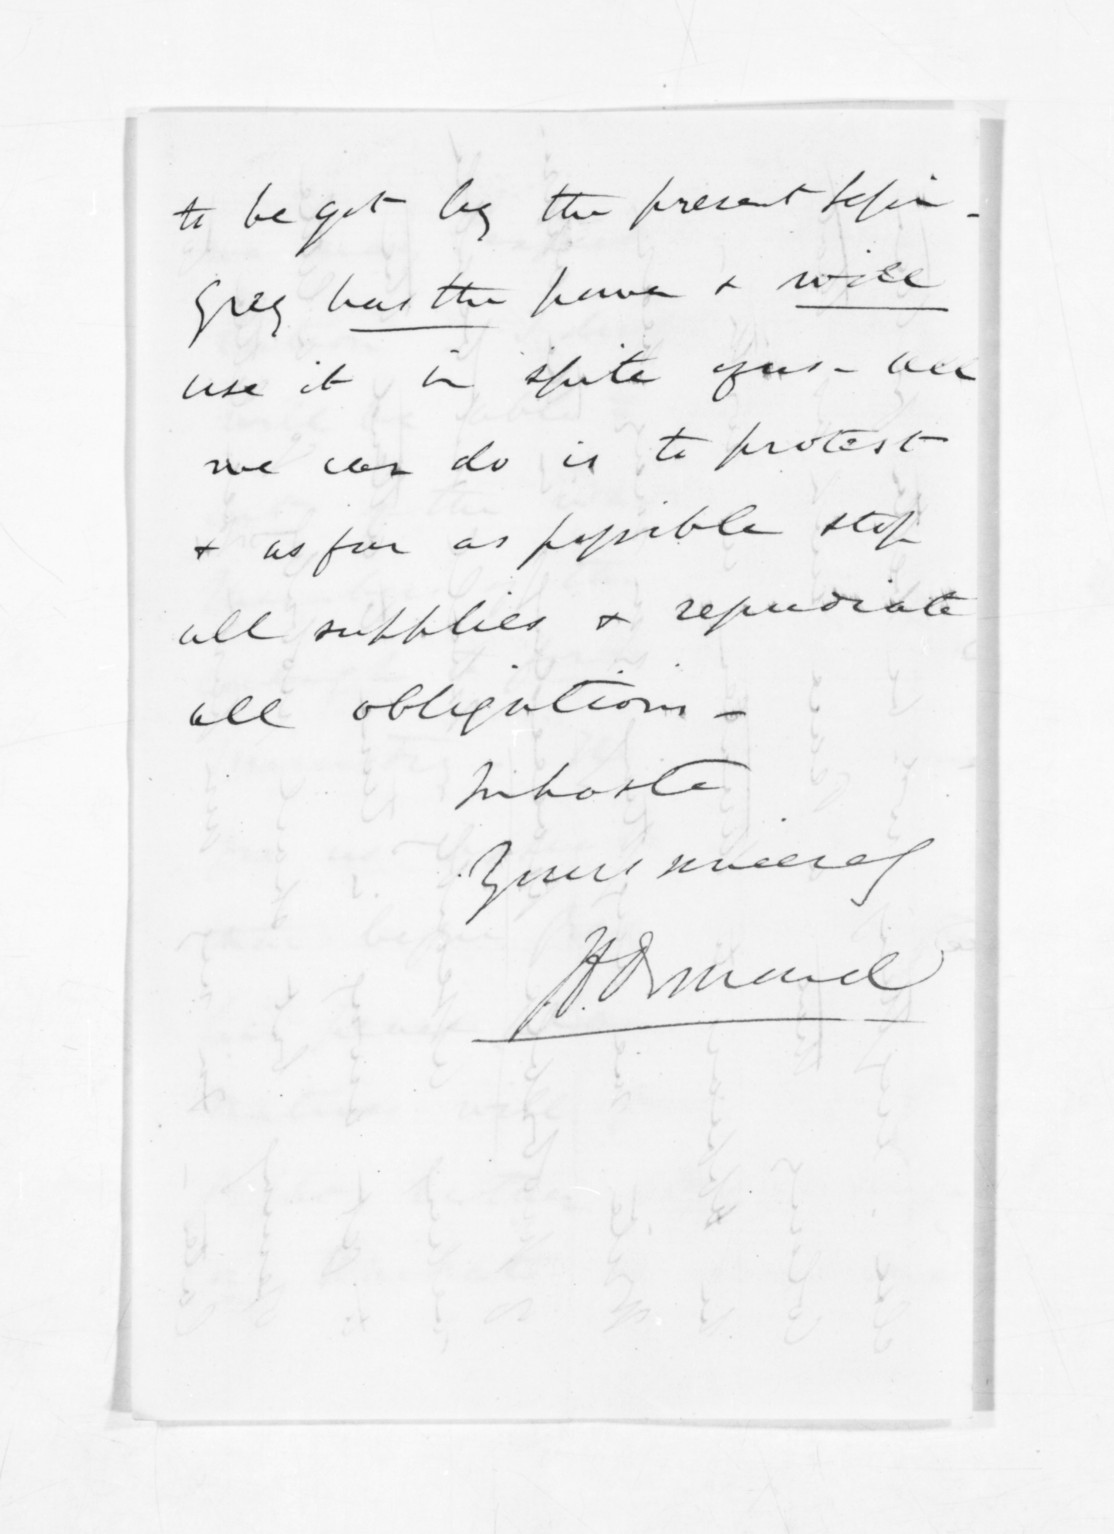 to be got by the present Session -
Grey has the power & will
use it in spite of us - all
we can do is to protest
& as far as possible stop
all supplies & repudiate
all obligations -
In haste
Yours sincerely
J. D. Ormond